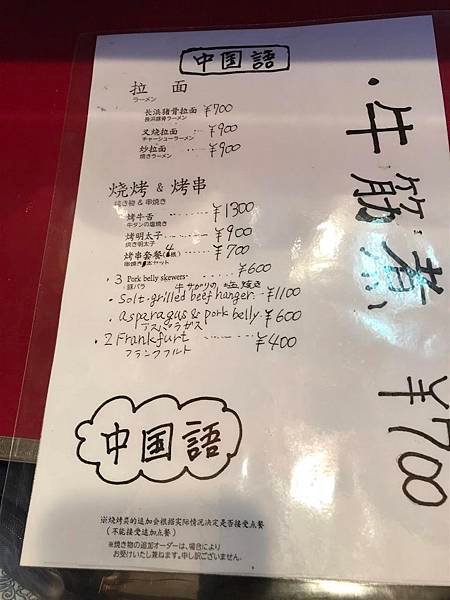 中国語
拉 面
ラーメン
长浜猪骨拉面 ¥700
長浜豚骨ラーメン
叉烧拉面 ¥900
チャーシューラーメン
炒拉面 ¥900
焼きラーメン
烧烤 & 烤串
焼き物 & 串焼き
烤牛舌 ¥1300
牛タンの塩焼き
烤明太子 ¥900
焼き明太子
烤串套餐(4根) ¥700
・3 Pork belly skewers ¥600
豚バラ
牛サガリの塩焼き
・Solt-grilled beef hanger ¥1100
・asparagus & pork belly ¥600
アスパラガス
・2 Frankfurt ¥400
フランクフルト
中国語
※烧烤类的追加会根据实际情况决定是否接受点餐
(不能接受追加点餐)
※焼き物の追加オーダーは、場合により
お受けいたし兼ねます。申し訳ございません。
・牛筋煮 ¥700